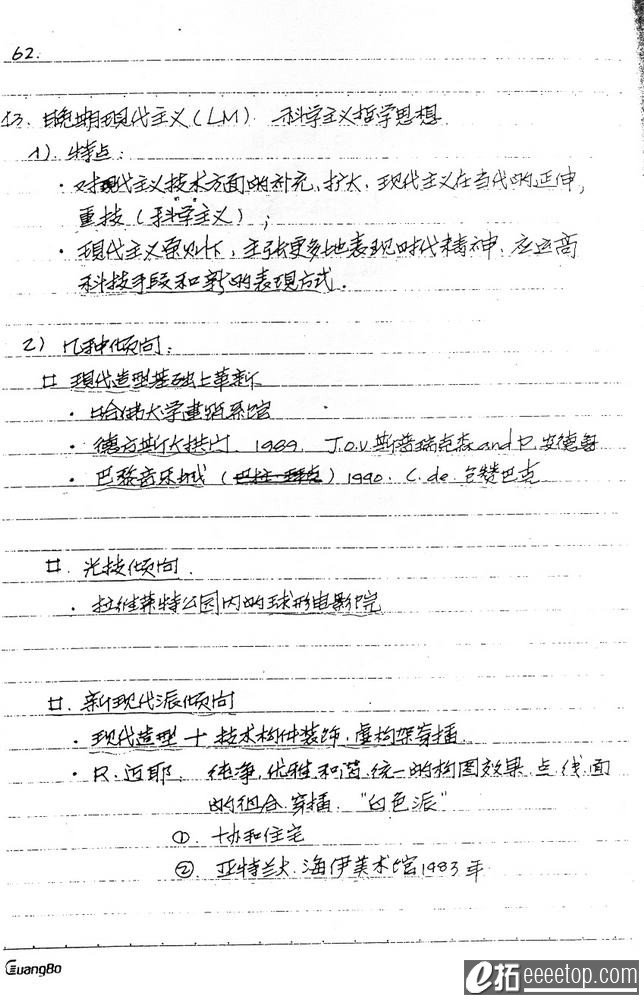 62.
13. 晚期现代主义(LM). 科学主义哲学思想
1). 特点:
· 对现代主义技术方面的补充、扩大, 现代主义在当代的延伸,
重技(科学主义);
· 现代主义原则下, 主张更多地表现时代精神、应运高
科技手段和新的表现方式.
2) 几种倾向:
现代造型基础上革新
· 哈佛大学建筑系馆
· 德方斯大拱门. 1989. J.O.V.斯普瑞克森and P.安德鲁
· 巴黎音乐城 () 1990. C.de.包赞巴克
光技倾向.
· 拉维莱特公园内的球形电影院
新现代派倾向
· 现代造型 + 技术构件装饰, 虚构架穿插.
· R.迈耶. 纯净, 优雅和谐, 统一的构图效果, 点、线、面
的组合、穿插. "白色派"
①. 协和住宅
②. 亚特兰大.海伊美术馆1983年
GuangBo
e拓 eeeetop.com